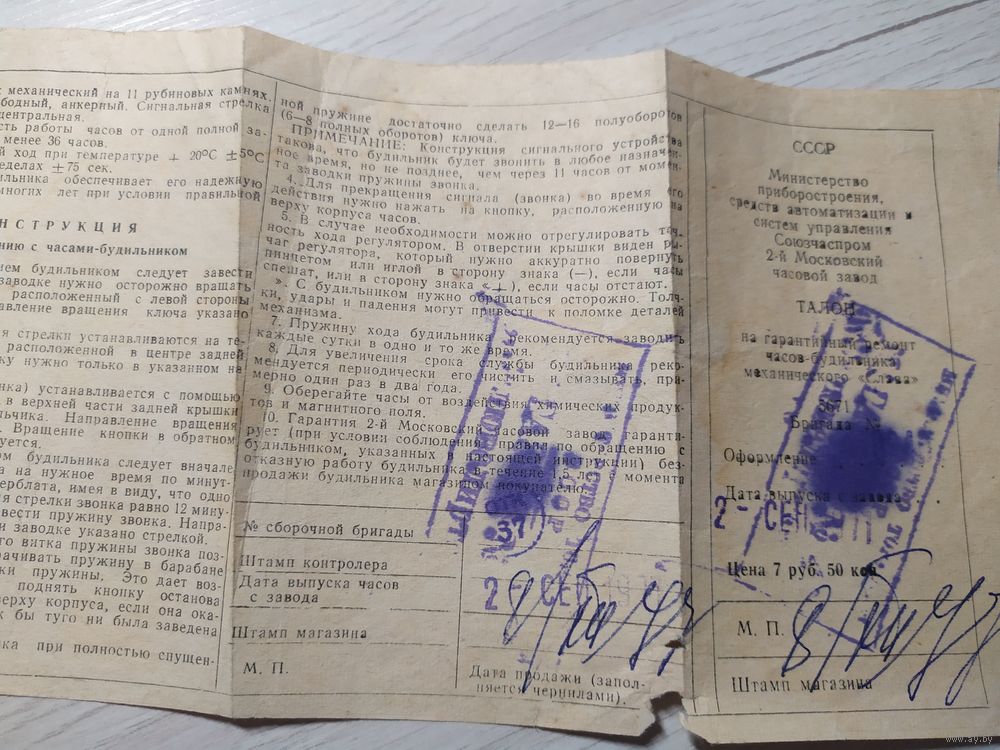 механический на 11 рубиновых камнях.
бодный, анкерный. Сигнальная стрелка
центральная.
сть работы часов от одной полной за-
менее 36 часов.
й ход при температуре + 20°С ±5°С
ределах ±75 сек.
ильника обеспечивает его надежную
многих лет при условии правильной
НСТРУКЦИЯ
нию с часами-будильником
ем будильником следует завести
заводке нужно осторожно вращать
расположенный с левой стороны
авление вращения ключа указано
я стрелки устанавливаются на те-
расположенной в центре задней
ку нужно только в указанном на
нка) устанавливается с помощью
в верхней части задней крышки
льчика. Направление вращения
Вращение кнопки в обратном
уется.
ом будильника следует вначале
а на нужное время по минут-
ерблата, имея в виду, что одно
я стрелки звонка равно 12 мину-
вести пружину звонка. Напра-
и заводке указано стрелкой.
го витка пружины звонка поз-
рачивать пружину в барабане
ки пружины. Это дает воз-
поднять кнопку останова
верху корпуса, если она ока-
к бы туго ни была заведена
ка при полностью спущен-
ной пружине достаточно сделать 12—16 полуоборотов
(6—8 полных оборотов) ключа.
ПРИМЕЧАНИЕ: Конструкция сигнального устройства
такова, что будильник будет звонить в любое назначен-
ное время, но не позднее, чем через 11 часов от момен-
та заводки пружины звонка.
4. Для прекращения сигнала (звонка) во время его
действия нужно нажать на кнопку, расположенную на
верху корпуса часов.
5. В случае необходимости можно отрегулировать точ-
ность хода регулятором. В отверстии крышки виден ры-
чаг регулятора, который нужно аккуратно повернуть
пинцетом или иглой в сторону знака (—), если часы
спешат, или в сторону знака «+), если часы отстают.
». С будильником нужно обращаться осторожно. Толч-
ки, удары и падения могут привести к поломке деталей
механизма.
7. Пружину хода будильника рекомендуется заводить
каждые сутки в одно и то же время.
8. Для увеличения срока службы будильника реко-
мендуется периодически его чистить и смазывать, при-
мерно один раз в два года.
9. Оберегайте часы от воздействия химических продук-
тов и магнитного поля.
10. Гарантия 2-й Московский часовой завод гаранти-
рует (при условии соблюдения правил по обращению с
будильником, указанных в настоящей инструкции) без-
отказную работу будильника в течение 1,5 лет с момента
продажи будильника магазином покупателю.
№ сборочной бригады
37
Штамп контролера
Дата выпуска часов
с завода
2 - СЕН
Штамп магазина
М. П.
Дата продажи (запол-
няется чернилами).
СССР
Министерство
приборостроения,
средств автоматизации и
систем управления
Союзчаспром
2-й Московский
часовой завод
ТАЛОН
на гарантийный ремонт
часов-будильника
механического «Слава»
5671
Бригада №
Оформление
Дата выпуска с завода
2 - СЕН
Цена 7 руб. 50 коп.
М. П.
Штамп магазина
www.ay.by